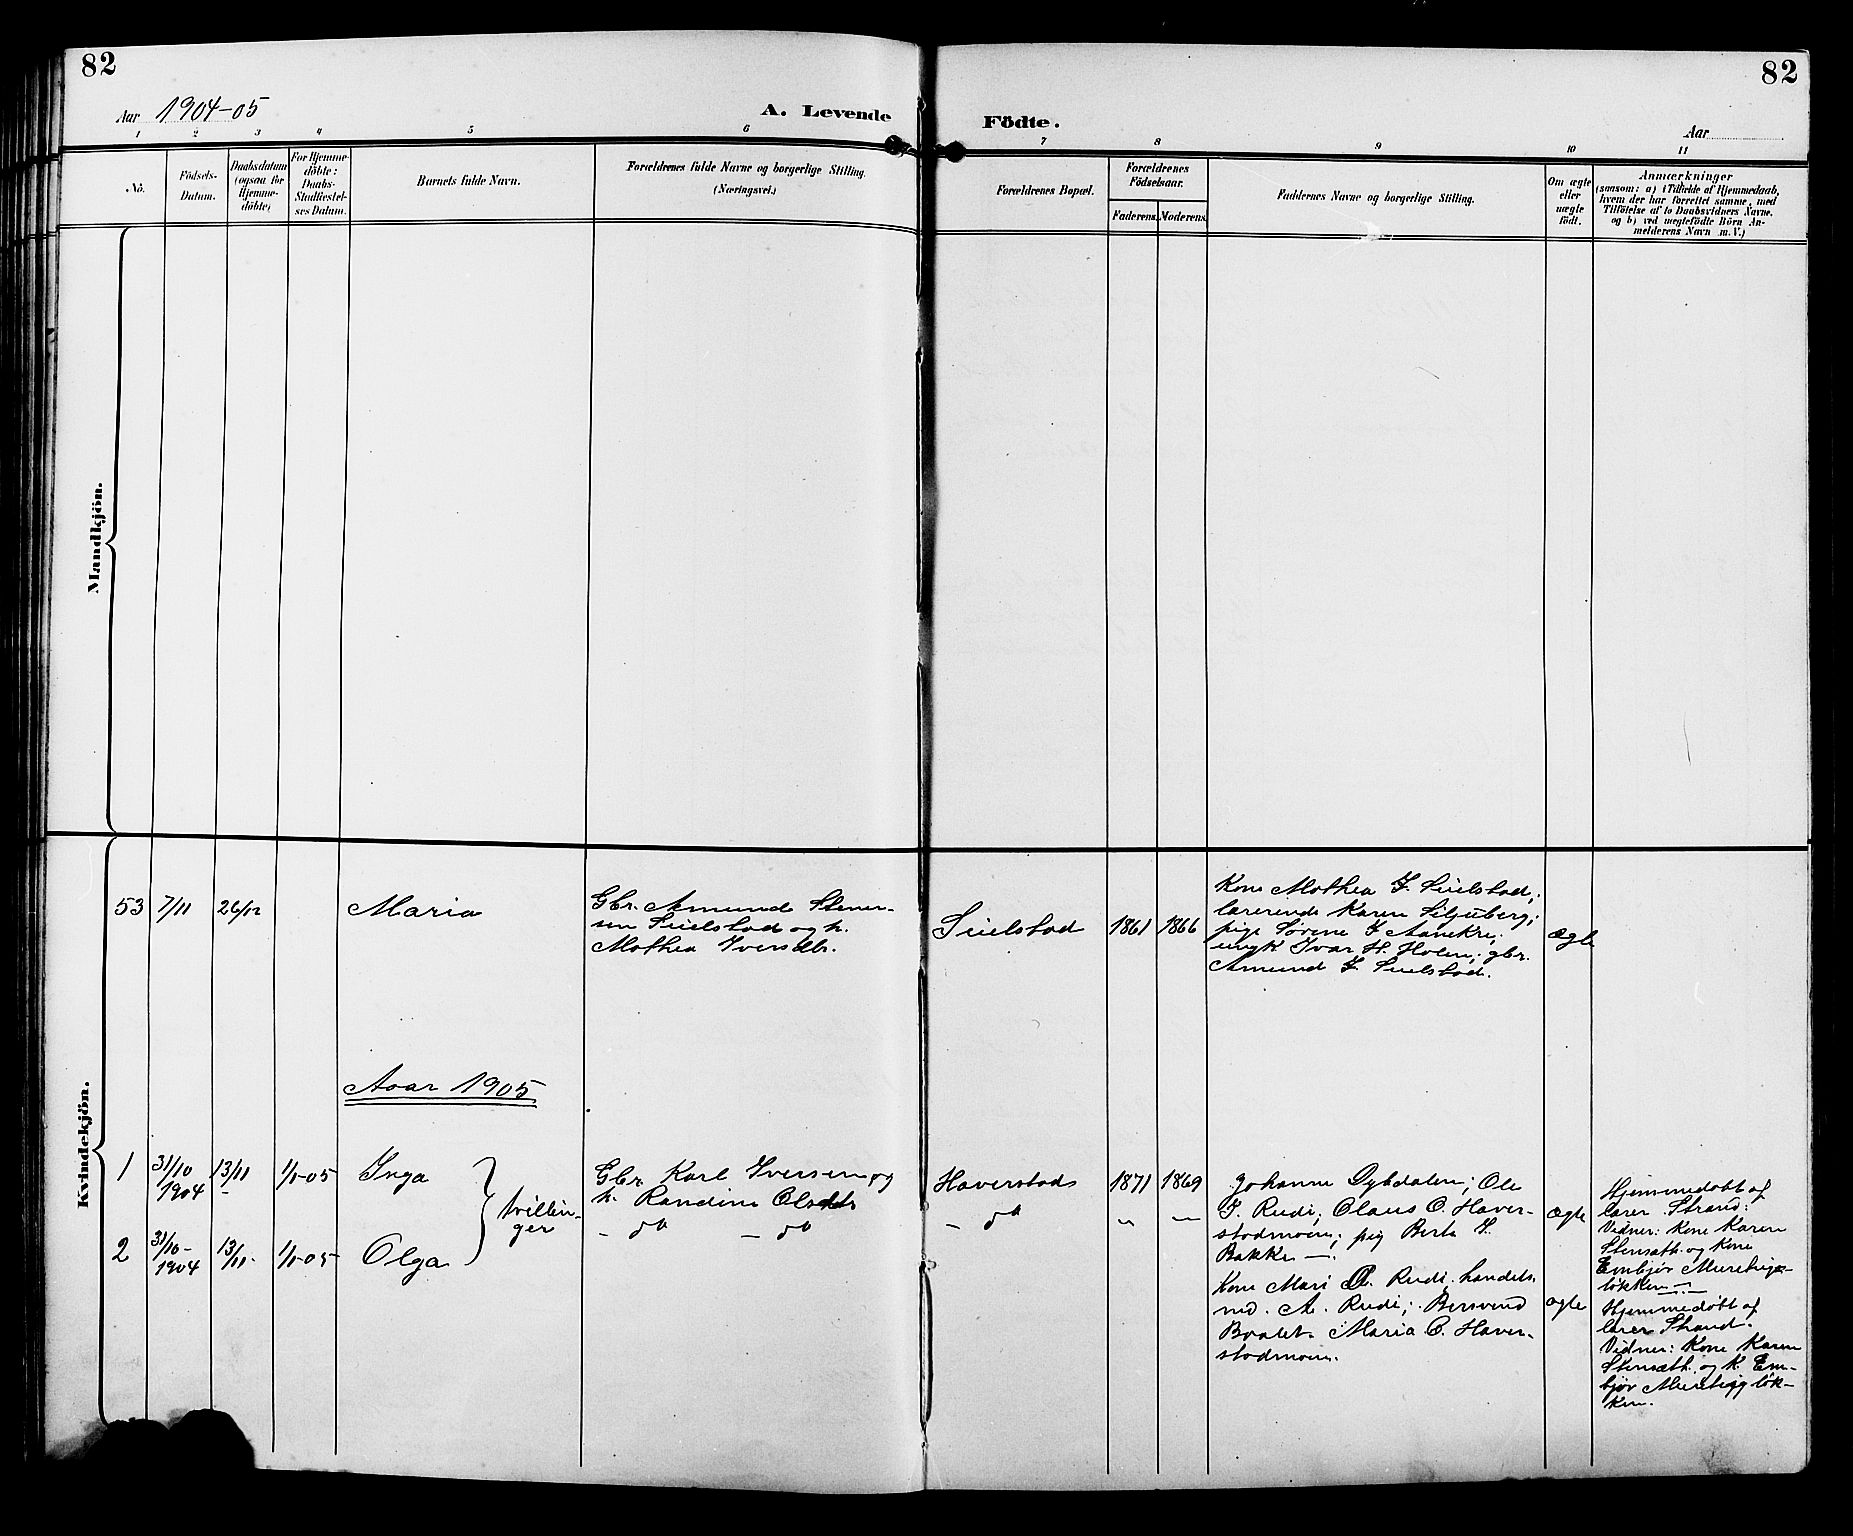 82
82
Aar 1904-05
A. Levende
Födte.
Aar
1 2 3 4 5 6
7 8 9 10 11
No.
Födsels-
Datum.
Daabsdatum
(ogsaa for
Hjemme-
döbte)
For Hjemme-
döbte:
Daabs-
Stadfæstel-
ses Datum.
Barnets fulde Navn.
Forældrenes fulde Navne og borgerlige Stilling.
(Næringsvei.)
Forældrenes Bopæl.
Forældrenes
Födselsaar.
Faderens.
Moderens.
Faddernes Navne og borgerlige Stilling.
Om ægte
eller
uægte
födt.
Anmærkninger
(saasom: a) i Tilfælde af Hjemmedaab,
hvem der har forrettet samme, med
Tilföielse af to Daabsvidners Navne,
og b) ved uægtefödte Börn An-
melderens Navn m. V.)
Mandkjön.
Kvindekjön.
53
7/11
26/12
Maria
Gbr. Amund Stener-
sen Suilstad og h.
Mathea Iversdtr.
Suilstad
1861
1866
Kone Mathea I. Suilstad;
lærerinde Karen Siljuberg;
pige Sørine I
ungk Ivar H. Holen; gbr.
Amund I. Suilstad.
ægte
Aaar 1905
1
31/10
1904
13/11
-
1/1-05
Inga
tvillin-
ger
Gbr. Karl Iversen og
h. Randine Olsdtr
- do - do
Haverstads
- do
1871
"
1869
"
Johanne Dybdalen; Ole
I. Rudi; Olaus O. Haver-
stadmoen; pig Berte I.
Bakke -
ægte
Hjemmedøbt af
lærer Strand:
Vidner: Kone Karen
Stensæth og Kone
Embjør
løkken
2
31/10-
1904
13/11.
1/1-05
Olga
Kone Mari O. Rudi, handels
md. A. Rudi; Bersvend
Braalet. Maria O. Haver-
stadmoen.
ægte
Hjemmedøbt af
lærer Strand.
Vidner: Kone Karen
Stensæth. og K. Em-
bjør løk-
ken.